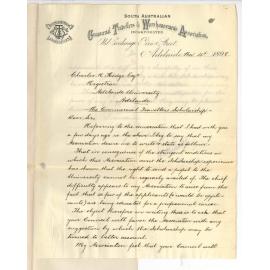 SOUTH AUSTRALIAN
Commercial Travellers & Warehousemen's Association
INCORPORATED
Adelaide Nov 10th 1898
Charles R. Hodge Esqre
Registrar
Adelaide University
Adelaide
The Commercial Travellers Scholarship
Dear Sir
Referring to the conversation that I had with you
a few days ago on the above I beg to say that my
Association desire me to state as follows
That in consequence of the stringent conditions on
which this Association own the Scholarship experience
has shown that the right to send a pupil to the
University cannot be regularly availed of. The chief
difficulty appears to my Association to arise from the
fact that as few of the applicants
are being educated for a professional career
The object therefore in writing them is to ask that
your Council will favor the Association with any
suggestion by which the Scholarship may be
turned to better account.
My Association feel that your Council will